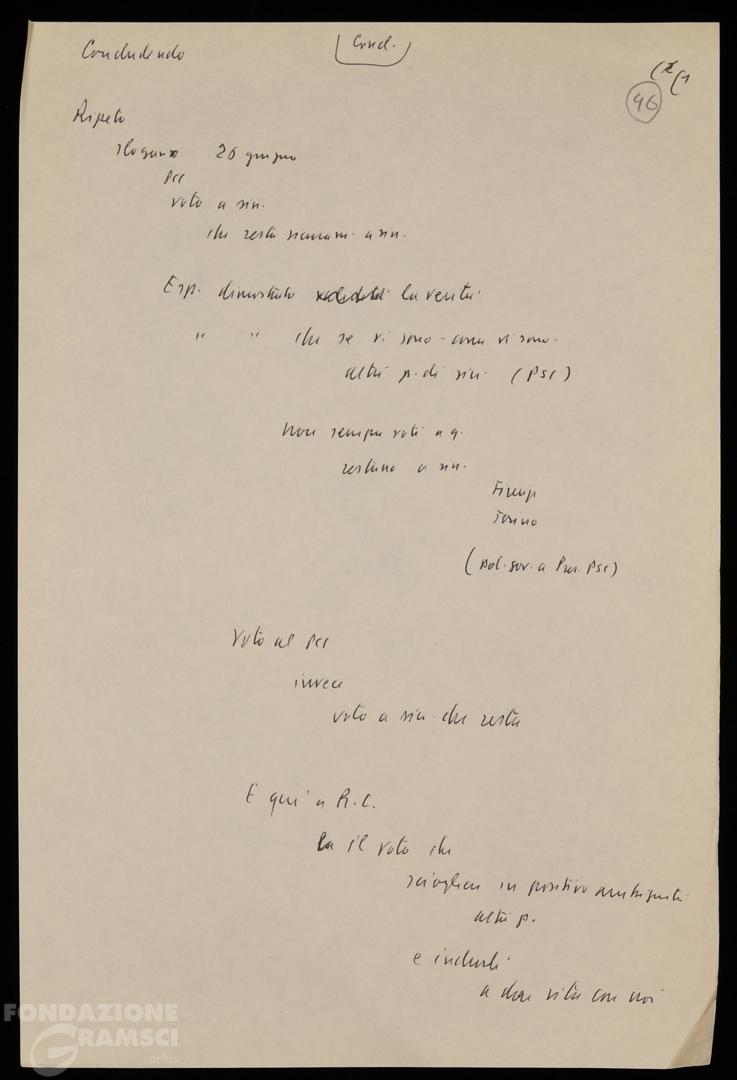 Concludendo
Concl.
46
Ripeto
slogan 26 giugno
PCI
voto a sin.
che resta sicuram. a sin.
Esp. dimostrato la verità
" " che se vi sono - come vi sono -
altri p. di sin. (PSI)
non sempre voti a q.
restano a sin.
Firenze
Torino
(Bol. gov. a Pres. PSI)
Voto al PCI
invece
voto a sin. che resta
E qui a R.C.
è il voto che
scioglie in positivo ambiguità
altri p.
e indurli
a dar vita con noi
FONDAZIONE
GRAMSCI
onlus